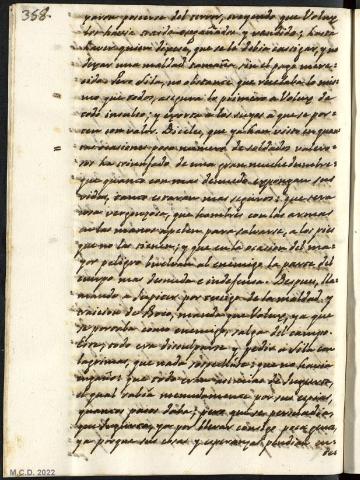 358.
poseerse del terror, creyendo que Volux
los havia traido engañados y vendido; hasta
haver quien dijera, que se le debia castigar, y no
dejar una maldad tamaña, sin el pago mere-
cido. Pero Sila, no obstante que recelaba lo mis-
mo que todos, asegura lo primero a Volux de
todo insulto; y exorta a los suyos a que se por-
ten con valor. Diceles, que ya han visto en otras
ocasiones poco numero de soldados valero-
sos ha triunfado de una gran muchedumbre:
que quanto con mas denuedo expongan sus
vidas, tanto estaran mas seguros: que sera
cosa vergonzosa, que hombres con las armas
en las manos apelen para salvarse, a los pies
que no las tienen; y que en la ocasion del ma-
yor peligro buelvan al enemigo la parte del
cuerpo mas desnuda e indefensa. Despues, lla-
mando a Jupiter por testigo de la maldad, y
traicion de Boco, manda que Volux, ya que
se portaba como enemigo, salga del campo.
Este, todo era disculparse y pedir a Sila con
lagrimas, que nada sospechase: que no havia
engaño: que todo eran astucias de Jugurta,
el qual sabia menudamente por sus espias,
quantos pasos daba; pero que se persuadia,
que Jugurta, ya por llevar consigo poca gente,
ya porque sus cosas y esperanzas pendian en-
M.C.D. 2022